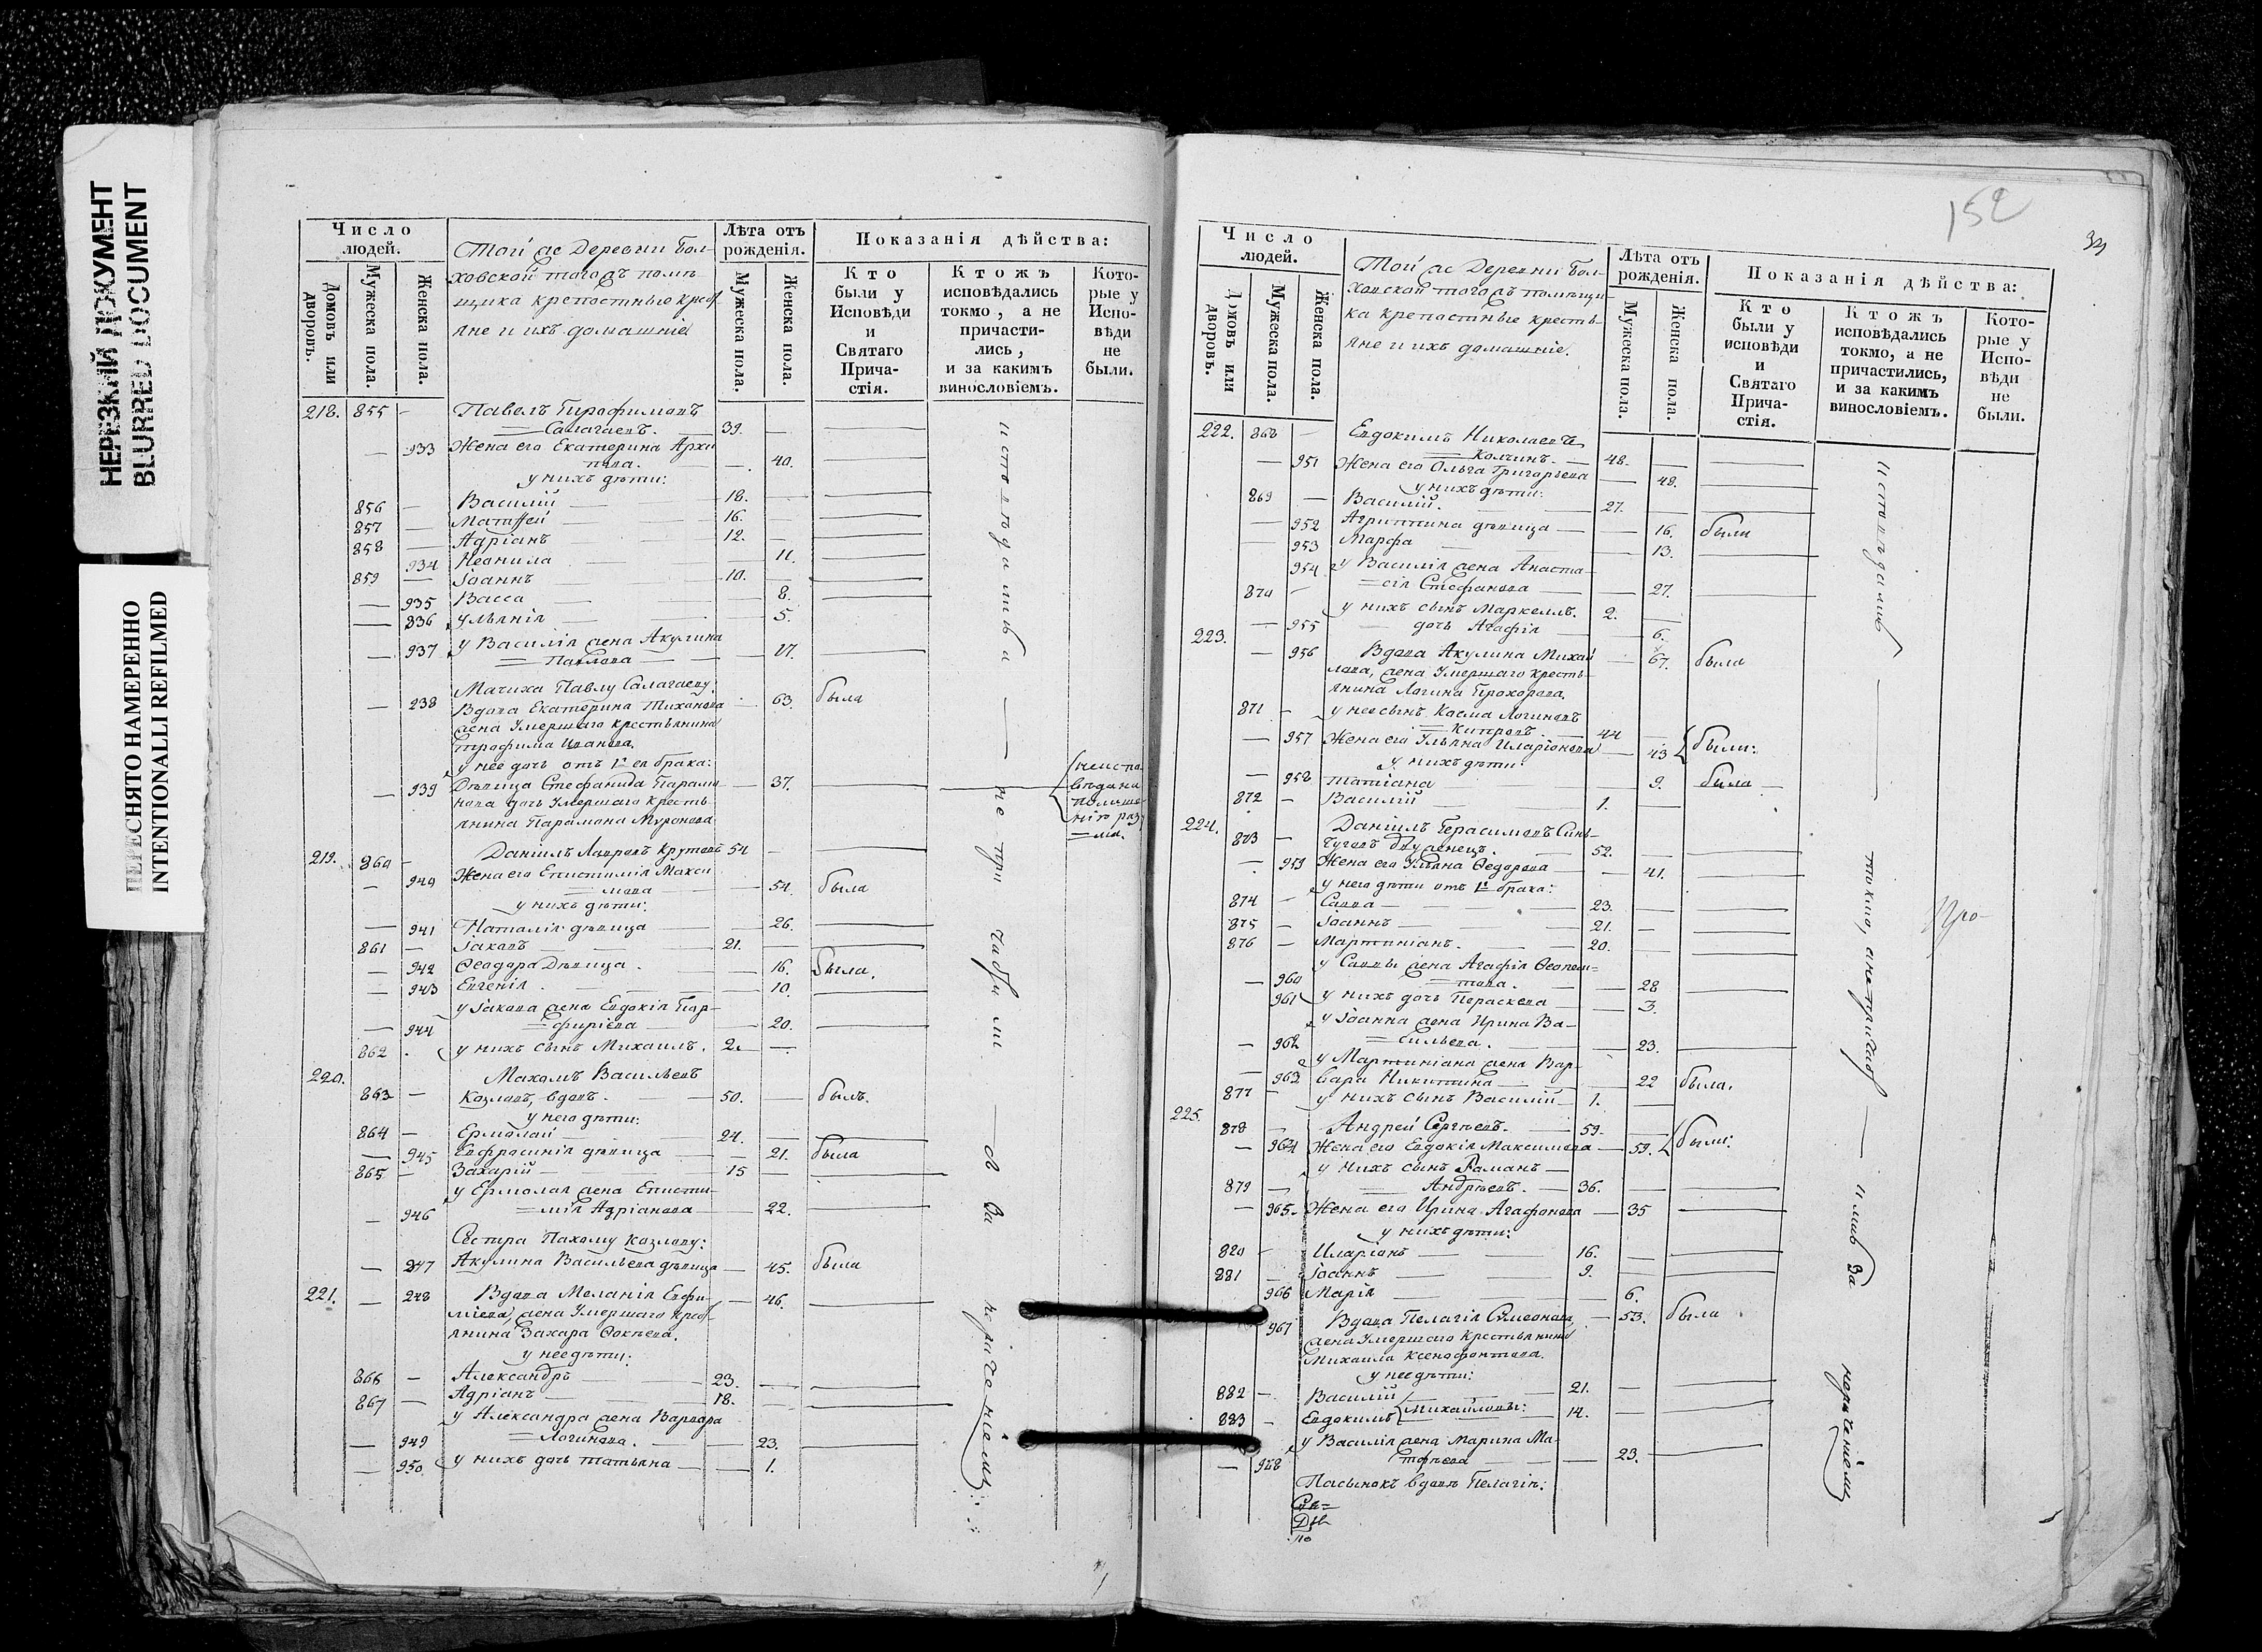 НЕРЕЗКИЙ ДОКУМЕНТ
BLURRED DOCUMENT
ПЕРЕСНЯТО НАМЕРЕННО
INTENTIONALLI REFILMED
Число людей.
Домовъ или дворовъ.
Мужеска пола.
Женска пола.
Той же деревни Бол-
ховской тогожъ помѣ-
щика крепостные крес-
яне и ихъ домашніе
Лѣта отъ рожденія.
Мужеска пола.
Женска пола.
Показанія дѣйства:
Кто были у Исповѣди и Святаго Прича-стія.
Ктожъ исповѣдались токмо, а не причасти-лись, и за какимъ винословіемъ.
Кото-рые у Испо-вѣди не были.
218. 855 — Павелъ Трофимовъ
Салагаевъ. 39. —
— 933 Жена его Екатерина Архи
пова. — 40.
у нихъ дѣти:
856 — Василій — 18. —
857 — Матѳей — 16. —
858 — Адріанъ — 12. —
934 Неонила — 11.
859 — Іоаннъ — 10. —
— 935 Васса — 8.
— 936 Ульянія — 5.
— 937 у Василія жена Акулина
Павлова — 17.
Мачиха Павлу Салагаеву:
— 938 Вдова Екатерина Тихонова — 63. была
жена умершаго крестьянина
Трофима Иванова.
у нее дочь отъ 1го ея брака:
— 939 Дѣвица Стефанида Парамо — 37.
нова дочь умершаго кресть
янина Парамона Миронова
219. 860 — Даніилъ Лавровъ Крутовъ 54 —
— 940 Жена его Епистимія Макси
мова — 54. была
у нихъ дѣти:
— 941 Наталія дѣвица — 26.
861 — Іаковъ — 21. —
— 942 Ѳеодора дѣвица. — 16. была.
— 943 Евгенія. — 10.
у Іакова жена Евдокія Пор-
— 944 фиріева — 20.
862 у нихъ сынъ Михаилъ. 2. —
220. Пахомъ Васильевъ
863 — Козловъ, вдовъ. — 50. — былъ.
у него дѣти:
864 — Ермолай — 24. —
— 945 Евфросинія дѣвица — 21. была
865 — Захарій — 15
у Ермолая жена Еписти-
— 946 мія Адріанова — 22.
Сестра Пахому Козлову:
— 947 Акулина Васильева дѣвица — 45. была
221. — 948 Вдова Меланія Евфи- — 46.
міева, жена умершаго крес-
янина Захара Фокѣева.
у нее дѣти:
866 — Александръ — 23. —
867 — Адріанъ — 18. —
у Александра жена Варвара
— 949 Логинова. — 23.
— 950 у нихъ дочь Татьяна — 1.
исповѣдались — не при
за
нераченіемъ
152
Число людей.
Домовъ или дворовъ.
Мужеска пола.
Женска пола.
Той же деревни Бол-
ховской тогожъ помѣщи-
ка крепостные кресть-
яне и ихъ домашніе.
Лѣта отъ рожденія.
Мужеска пола.
Женска пола.
Показанія дѣйства:
Кто были у исповѣди и Святаго Прича-стія.
Ктожъ исповѣдались токмо, а не причастились, и за какимъ винословіемъ.
Кото-рые у Испо-вѣди не были.
222. 868 — Евдокимъ Николаевъ
Колчинъ. — 48. —
— 951 Жена его Ольга Григорьева — 48.
у нихъ дѣти:
869 — Василій. — 27. —
— 952 Агриппина дѣвица — 16. были
— 953 Марфа — 13.
954 у Василія жена Анаста-
сія Стефанова — 27.
870 — у нихъ сынъ Маркеллъ. 2. —
— 955 дочь Агафія — 6.
223. — 956 Вдова Акулина Михай — 67. была
лова, жена умершаго кресть-
янина Логина Прохорова.
871 — у нее сынъ Косма Логиновъ
44 —
— 957 Жена его Ульяна Иларіонова — 43 были:
у нихъ дѣти:
— 958 Татіана — 9. была
872 — Василій — 1. —
224. 873 — Даніилъ Герасимовъ Син-
52. —
— 959 Жена его Ульяна Ѳедорова — 41.
у него дѣти отъ 1го брака:
874 — Савва — 23. —
875 — Іоаннъ — 21. —
876 — Мартиніанъ. — 20. —
у Саввы жена Агафія
— 960 — 28
961 у нихъ дочь Параскева — 3.
у Іоанна жена Ирина Ва-
— 962 сильева. — 23.
у Мартиніана жена Вар-
— 963 вара Никитина — 22 была.
877 — у нихъ сынъ Василій — 1. —
225. 878 — Андрей Сергѣевъ. — 59. —
— 964 Жена его Евдокія Максимова — 59. были:
у нихъ сынъ Романъ —
879 — Андрѣевъ. — 36. —
— 965. Жена его Ирина Агафонова — 35
у нихъ дѣти:
880 — Иларіонъ — 16. —
881 — Іоаннъ — 9. —
966 Марія — 6.
967 Вдова Пелагія Симеонова — 53. была
жена умершаго крестьянина
Михаила Ксенофонтова.
у нее дѣти:
882 — Василій — 21. —
883 — Евдокимъ Михайловы: — 14. —
у Василія жена Марина Ма-
— 968 тфѣева — 23.
Пасынокъ вдовѣ Пелагіи:
исповѣдались — токмо, а не — за нераченіемъ